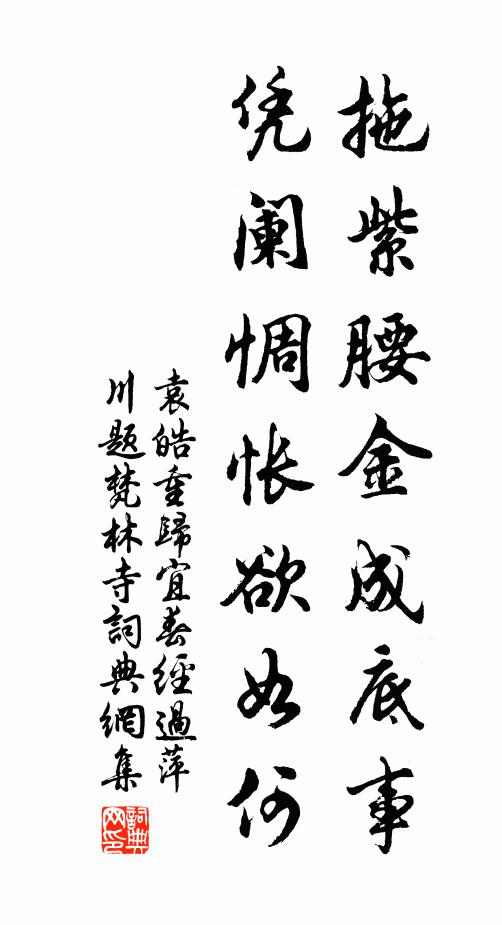 拖紫腰金成底事
凭阑惆怅欲如何
袁皓重歸宜春經過萍
川题梵林寺詞典網集
詞典网印